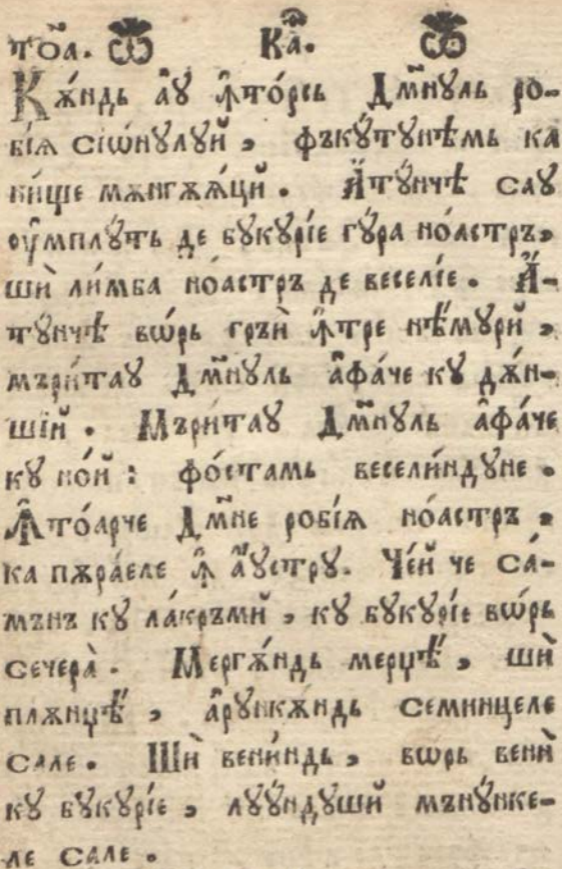 то́а. Ка҃.
Кѫ́ндь а҆у ꙟ҆то́рсь Дм҃нꙋль ро-
бі́ѧ сїѡ́нꙋлꙋй , фъкꙋ́тꙋнѣмь ка
ни́ще мѫнгѫѧ́цй . А҆тꙋ́нчѣ саꙋ
ᲂу҆мплꙋ́ть де бꙋкꙋрі́е гꙋ́ра ноа́стръ,
шѝ ли́мба ноа́стръ де весели́е . А҆-
тꙋ́нчѣ вѡ́рь гръѝ ꙟ҆тре нѣ́мꙋрй ,
мъри́таꙋ Дм҃нꙋль а҆фа́че кꙋ дѫ́н-
шїй . Мъри́таꙋ Дм҃нꙋль а҆фа́че
кꙋ но́й : фо́стамь весели́ндꙋне .
Ꙟ҆тоа́рче Дм҃не робі́ѧ ноа́стръ ,
ка пѫра́еле ꙟ҆ а҆́ꙋстрꙋ. Че́й че са́-
мънъ кꙋ ла́кръмй , кꙋ бꙋкꙋрі́е вѡ́рь
сечера̀ . Мергѫ́ндь мерџѣ̀ , шѝ
плѫнџѣ̀ , а҆рꙋнкѫ́ндь семинцеле
сале . Шѝ вени́ндь , вѡрь венѝ
кꙋ бꙋкꙋрі́е , лꙋꙋ́ндꙋшй мънꙋ́нке-
ле сале .